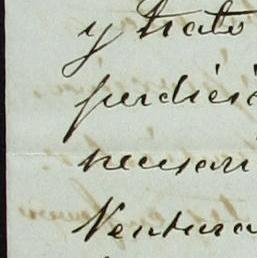 y trato
perdici
necesari
Ventura